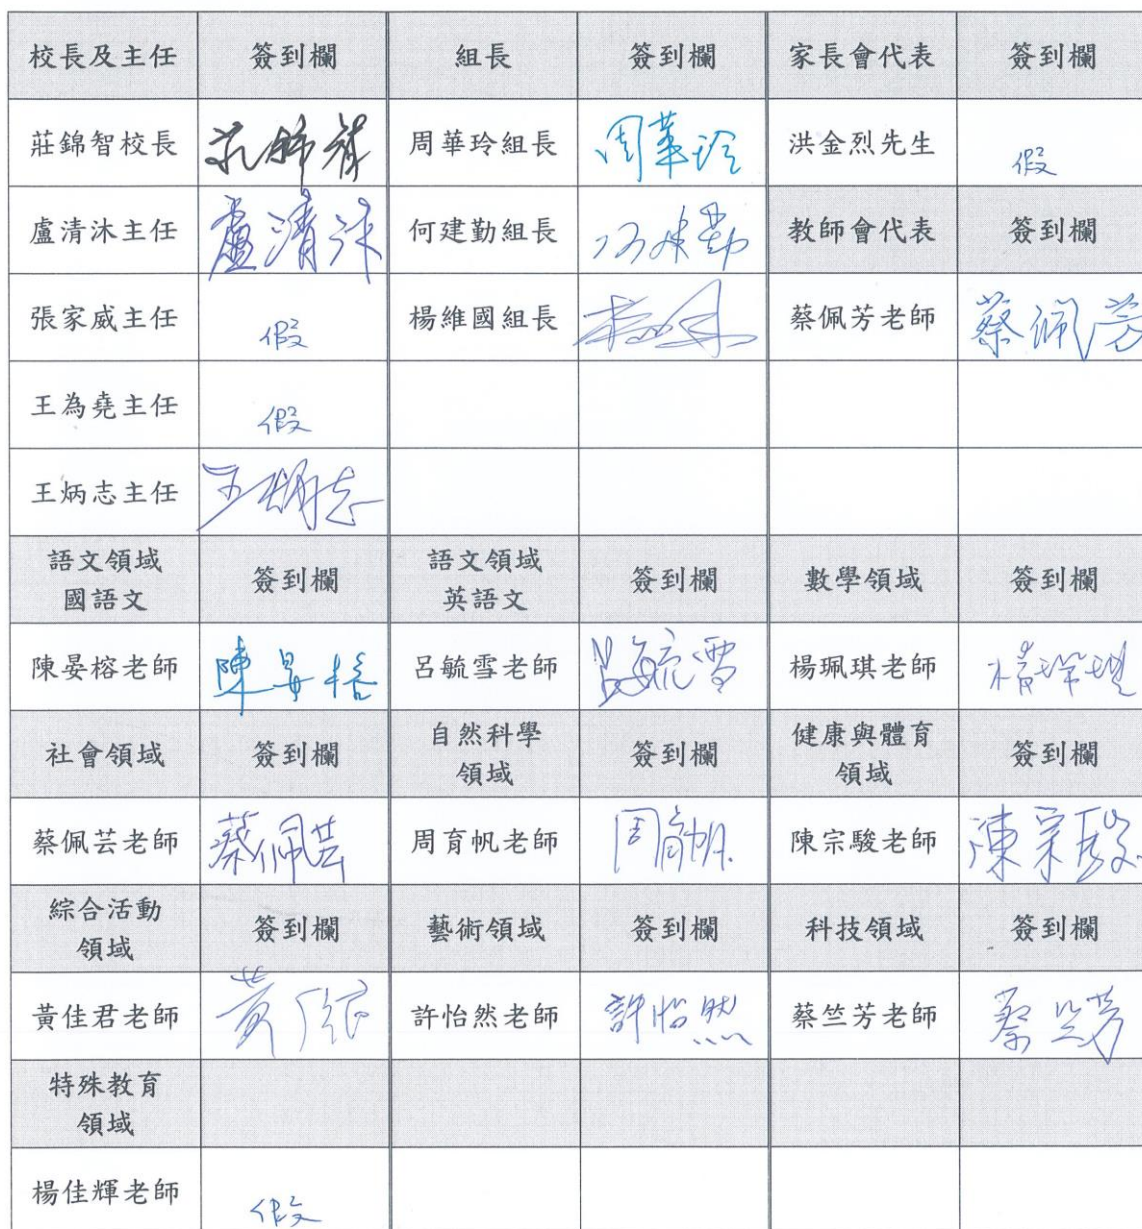 校長及主任 簽到欄 組長 簽到欄 家長會代表 簽到欄
莊錦智校長 莊錦智 周華玲組長 周華玲 洪金烈先生 假
盧清沐主任 盧清沐 何建勤組長 何建勤 教師會代表 簽到欄
張家威主任 假 楊維國組長 蔡佩芳老師 蔡佩芳
王為堯主任 假
王炳志主任 王炳志
語文領域 簽到欄 語文領域 簽到欄 數學領域 簽到欄
國語文 英語文
陳晏榕老師 陳晏榕 呂毓雪老師 呂毓雪 楊珮琪老師 楊珮琪
社會領域 簽到欄 自然科學 簽到欄 健康與體育 簽到欄
領域 領域
蔡佩芸老師 蔡佩芸 周育帆老師 周育帆 陳宗駿老師 陳宗駿
綜合活動 簽到欄 藝術領域 簽到欄 科技領域 簽到欄
領域
黃佳君老師 黃佳君 許怡然老師 許怡然 蔡竺芳老師 蔡竺芳
特殊教育
領域
楊佳輝老師 假